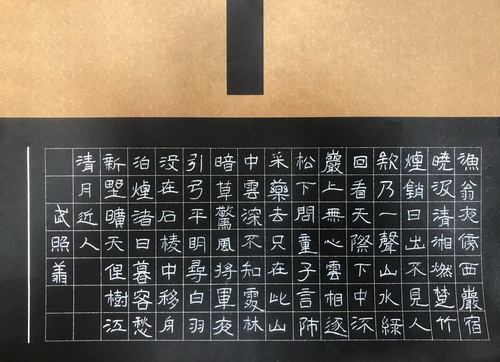 漁翁夜傍西巖宿
曉汲清湘燃楚竹
煙銷日出不見人
欸乃一聲山水綠
回看天際下中流
巖上無心雲相逐
松下問童子言師
采藥去只在此山
中雲深不知處林
暗草驚風將軍夜
引弓平明尋白羽
没在石棱中移舟
泊煙渚日暮客愁
新野曠天低樹江
清月近人
武照